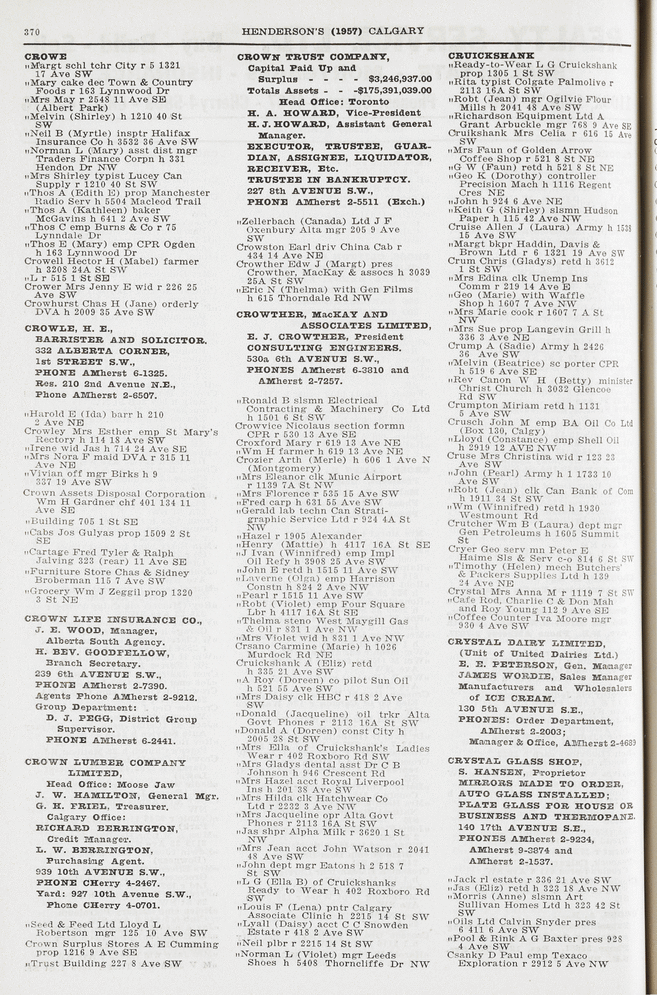 370
HENDERSON'S (1957) CALGARY
CROWE
„Margt schl tchr City r 5 1321
17 Ave SW
„Mary cake dec Town & Country
Foods r 163 Lynnwood Dr
„Mrs May r 2548 11 Ave SE
(Albert Park)
„Melvin (Shirley) h 1210 40 St
SW
„Neil B (Myrtle) insptr Halifax
Insurance Co h 3532 36 Ave SW
„Norman L (Mary) asst dist mgr
Traders Finance Corpn h 331
Hendon Dr NW
„Mrs Shirley typist Lucey Can
Supply r 1210 40 St SW
„Thos A (Edith E) prop Manchester
Radio Serv h 5504 Macleod Trail
„Thos A (Kathleen) baker
McGavins h 641 2 Ave SW
„Thos C emp Burns & Co r 75
Lynndale Dr
„Thos E (Mary) emp CPR Ogden
h 163 Lynnwood Dr
Crowell Hector H (Mabel) farmer
h 3208 24A St SW
„L r 515 1 St SE
Crower Mrs Jenny E wid r 226 25
Ave SW
Crowhurst Chas H (Jane) orderly
DVA h 2009 35 Ave SW
CROWLE, H. E.,
BARRISTER AND SOLICITOR.
332 ALBERTA CORNER,
1st STREET S.W.,
PHONE AMherst 6-1325.
Res. 210 2nd Avenue N.E.,
Phone AMherst 2-6507.
„Harold E (Ida) barr h 210
2 Ave NE
Crowley Mrs Esther emp St Mary's
Rectory h 114 18 Ave SW
„Irene wid Jas h 714 24 Ave SE
„Mrs Nora F maid DVA r 315 11
Ave NE
„Vivian off mgr Birks h 9
337 19 Ave SW
Crown Assets Disposal Corporation
Wm H Gardner chf 401 134 11
Ave SE
„Building 705 1 St SE
„Cabs Jos Gulyas prop 1509 2 St
SE
„Cartage Fred Tyler & Ralph
Jalving 323 (rear) 11 Ave SE
„Furniture Store Chas & Sidney
Broberman 115 7 Ave SW
„Grocery Wm J Zeggil prop 1320
3 St NE
CROWN LIFE INSURANCE CO.,
J. E. WOOD, Manager,
Alberta South Agency.
H. BEV. GOODFELLOW,
Branch Secretary.
239 6th AVENUE S.W.,
PHONE AMherst 2-7390.
Agents Phone AMherst 2-9212.
Group Department:
D. J. PEGG, District Group
Supervisor.
PHONE AMherst 6-2441.
CROWN LUMBER COMPANY
LIMITED,
Head Office: Moose Jaw
J. W. HAMILTON, General Mgr.
G. H. FRIEL, Treasurer.
Calgary Office:
RICHARD BERRINGTON,
Credit Manager.
L. W. BERRINGTON,
Purchasing Agent.
939 10th AVENUE S.W.,
PHONE CHerry 4-2467.
Yard: 927 10th Avenue S.W.,
Phone CHerry 4-0701.
„Seed & Feed Ltd Lloyd L
Robertson mgr 125 10 Ave SW
Crown Surplus Stores A E Cumming
prop 1216 9 Ave SE
„Trust Building 227 8 Ave SW
CROWN TRUST COMPANY,
Capital Paid Up and
Surplus - - - - $3,246,937.00
Totals Assets - - -$175,391,039.00
Head Office: Toronto
H. A. HOWARD, Vice-President
H. J. HOWARD, Assistant General
Manager.
EXECUTOR, TRUSTEE, GUAR-
DIAN, ASSIGNEE, LIQUIDATOR,
RECEIVER, Etc.
TRUSTEE IN BANKRUPTCY.
227 8th AVENUE S.W.,
PHONE AMherst 2-5511 (Exch.)
„Zellerbach (Canada) Ltd J F
Oxenbury Alta mgr 205 9 Ave
SW
Crowston Earl driv China Cab r
434 14 Ave NE
Crowther Edw J (Margt) pres
Crowther, MacKay & assocs h 3039
25A St SW
„Eric N (Thelma) with Gen Films
h 615 Thorndale Rd NW
CROWTHER, MacKAY AND
ASSOCIATES LIMITED,
E. J. CROWTHER, President
CONSULTING ENGINEERS.
530a 6th AVENUE S.W.,
PHONES AMherst 6-3810 and
AMherst 2-7257.
„Ronald B slsmn Electrical
Contracting & Machinery Co Ltd
h 1501 6 St SW
Crowvice Nicolaus section formn
CPR r 530 13 Ave SE
Croxford Mary r 619 13 Ave NE
„Wm H farmer h 619 13 Ave NE
Crozier Arth (Merle) h 606 1 Ave N
(Montgomery)
„Mrs Eleanor clk Munic Airport
r 1139 7A St NW
„Mrs Florence r 535 15 Ave SW
„Fred carp h 631 55 Ave SW
„Gerald lab techn Can Strati-
graphic Service Ltd r 924 4A St
NW
„Hazel r 1905 Alexander
„Henry (Mattie) h 4117 16A St SE
„J Ivan (Winnifred) emp Impl
Oil Refy h 3908 25 Ave SW
„John E retd h 1515 11 Ave SW
„Laverne (Olga) emp Harrison
Constn h 824 2 Ave NW
„Pearl r 1515 11 Ave SW
„Robt (Violet) emp Four Square
Lbr h 4117 16A St SE
„Thelma steno West Maygill Gas
& Oil r 831 1 Ave NW
„Mrs Violet wid h 831 1 Ave NW
Crsano Carmine (Marie) h 1026
Murdock Rd NE
Cruickshank A (Eliz) retd
h 335 21 Ave SW
„A Roy (Doreen) co pilot Sun Oil
h 521 55 Ave SW
„Mrs Daisy clk HBC r 418 2 Ave
SW
„Donald (Jacqueline) oil trkr Alta
Govt Phones r 2113 16A St SW
„Donald A (Doreen) const City h
2005 28 St SW
„Mrs Ella of Cruickshank's Ladies
Wear r 402 Roxboro Rd SW
„Mrs Gladys dental asst Dr C B
Johnson h 946 Crescent Rd
„Mrs Hazel acct Royal Liverpool
Ins h 201 38 Ave SW
„Mrs Hilda clk Hatchwear Co
Ltd r 2232 3 Ave NW
„Mrs Jacqueline opr Alta Govt
Phones r 2113 16A St SW
„Jas shpr Alpha Milk r 3620 1 St
NW
„Mrs Jean acct John Watson r 2041
48 Ave SW
„John dept mgr Eatons h 2 518 7
St SW
„L G (Ella B) of Cruickshanks
Ready to Wear h 402 Roxboro Rd
SW
„Louis F (Lena) pntr Calgary
Associate Clinic h 2215 14 St SW
„Lyall (Daisy) acct C C Snowden
Estate r 418 2 Ave SW
„Neil plbr r 2215 14 St SW
„Norman L (Violet) mgr Leeds
Shoes h 5408 Thorncliffe Dr NW
CRUICKSHANK
„Ready-to-Wear L G Cruickshank
prop 1305 1 St SW
„Rita typist Colgate Palmolive r
2113 16A St SW
„Robt (Jean) mgr Ogilvie Flour
Mills h 2041 48 Ave SW
„Richardson Equipment Ltd A
Grant Arbuckle mgr 768 9 Ave SE
Cruikshank Mrs Celia r 616 15 Ave
SW
„Mrs Faun of Golden Arrow
Coffee Shop r 521 8 St NE
„G W (Faun) retd h 521 8 St NE
„Geo K (Dorothy) controller
Precision Mach h 1116 Regent
Cres NE
„John h 924 6 Ave NE
„Keith G (Shirley) slsmn Hudson
Paper h 115 42 Ave NW
Cruise Allen J (Laura) Army h 1538
15 Ave SW
„Margt bkpr Haddin, Davis &
Brown Ltd r 6 1321 19 Ave SW
Crum Chris (Gladys) retd h 3612
1 St SW
„Mrs Edina clk Unemp Ins
Comm r 219 14 Ave E
„Geo (Marie) with Waffle
Shop h 1607 7 Ave NW
„Mrs Marie cook r 1607 7 A St
NW
„Mrs Sue prop Langevin Grill h
336 3 Ave NE
Crump A (Sadie) Army h 2426
36 Ave SW
„Melvin (Beatrice) sc porter CPR
h 519 6 Ave SE
„Rev Canon W H (Betty) minister
Christ Church h 3032 Glencoe
Rd SW
Crumpton Miriam retd h 1131
5 Ave SW
Crusch John M emp BA Oil Co Ltd
(Box 130, Calgy)
„Lloyd (Constance) emp Shell Oil
h 2919 12 AVE NW
Cruse Mrs Christina wid r 123 23
Ave SW
„John (Pearl) Army h 1 1733 10
Ave SW
„Robt (Jean) clk Can Bank of Com
h 1911 34 St SW
„Wm (Winnifred) retd h 1930
Westmount Rd
Crutcher Wm B (Laura) dept mgr
Gen Petroleums h 1605 Summit
St
Cryer Geo serv mn Peter E
Haime Sls & Serv c-o 814 6 St SW
„Timothy (Helen) mech Butchers'
& Packers Supplies Ltd h 139
24 Ave NE
Crystal Mrs Anna M r 1119 7 St SW
„Cafe Rod, Charlie C & Don Mah
and Roy Young 112 9 Ave SE
„Coffee Counter Iva Moore mgr
930 4 Ave SW
CRYSTAL DAIRY LIMITED,
(Unit of United Dairies Ltd.)
E. E. PETERSON, Gen. Manager
JAMES WORDIE, Sales Manager
Manufacturers and Wholesalers
of ICE CREAM.
130 5th AVENUE S.E.,
PHONES: Order Department,
AMherst 2-2003;
Manager & Office, AMherst 2-4689
CRYSTAL GLASS SHOP,
S. HANSEN, Proprietor
MIRRORS MADE TO ORDER,
AUTO GLASS INSTALLED;
PLATE GLASS FOR HOUSE OR
BUSINESS AND THERMOPANE.
140 17th AVENUE S.E.,
PHONES AMherst 2-9234,
AMherst 9-3874 and
AMherst 2-1537.
„Jack rl estate r 336 21 Ave SW
„Jas (Eliz) retd h 323 18 Ave NW
„Morris (Anne) slsmn Art
Sullivan Homes Ltd h 323 42 St
SW
„Oils Ltd Calvin Snyder pres
6 411 6 Ave SW
„Pool & Rink A G Baxter pres 928
4 Ave SW
Csanky D Paul emp Texaco
Exploration r 2912 5 Ave NW